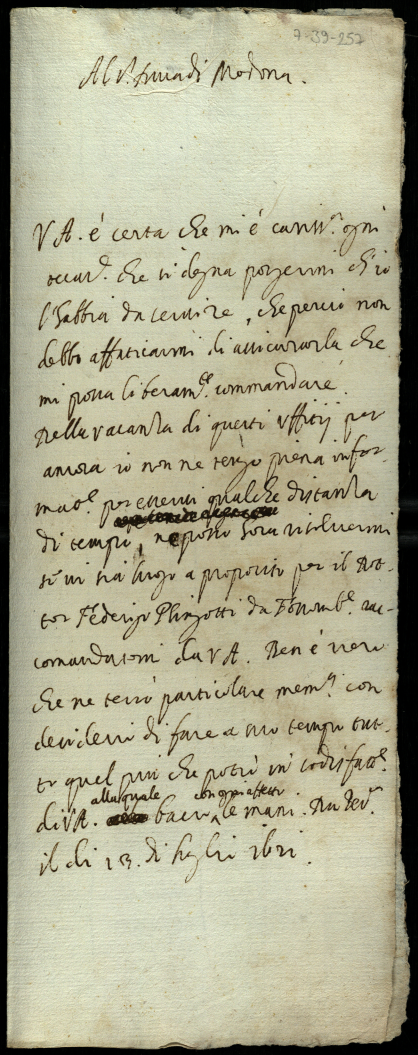 7-39-257
Al S.r Duca di Modona.
V A. é certa che mi é cariss.a ogni
occas.e che si degna porgermi ch'io
l'habbia da servire, che perciò non
debbo affaticarmi di assicurarla che
mi possa liberam.te commandare.
Della vacanza di questi uffitij per
ancora io non ne tengo piena infor-
mat.e per esservi qualche distanza
di tempo, ne posso hora risolvermi
se vi sia luogo a proposito per il Dot-
tor Fed.erigo
comandatomi da V A. Ben é vero
che ne terrò particolare mem.a con
desiderio di fare a suo tempo tut-
to quel più che potrò in sodisfatt.e
di VA. alla quale bacio con ogni affetto le mani. Da
il di 13. di luglio 1621.